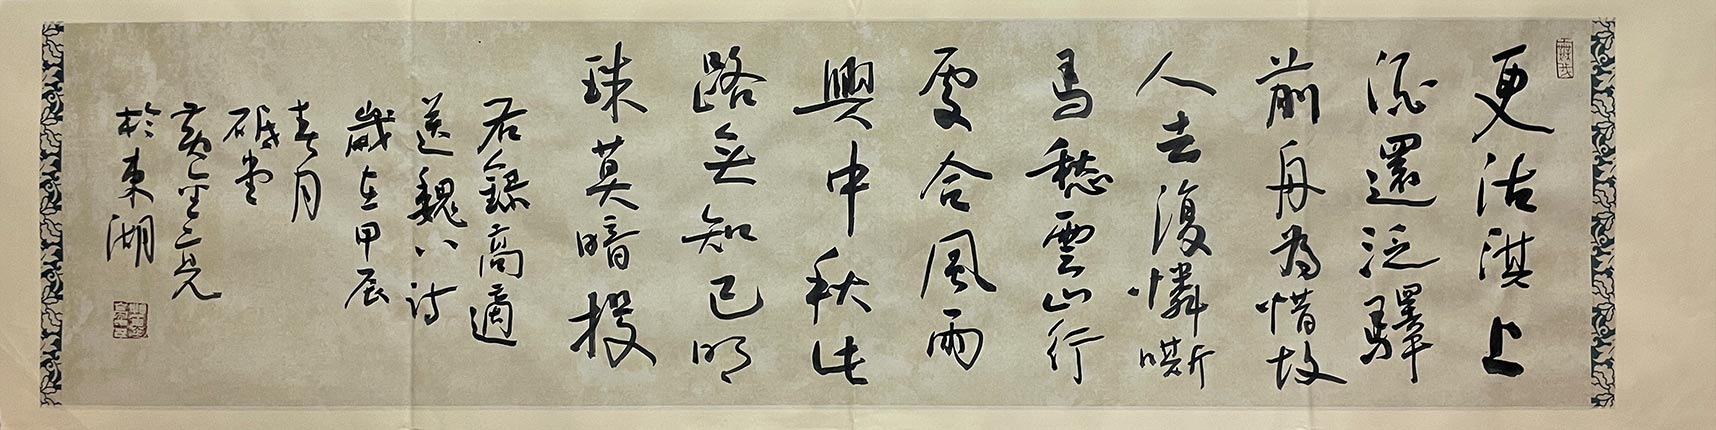 更沽淇上
酒還泛驛
前舟為惜故
人去復憐嘶
馬愁雲山行
處合風雨
興中秋此
路無知己明
珠莫暗投
右錄高適
送魏八詩
歲在甲辰
春月
砥堂
黄
於東湖